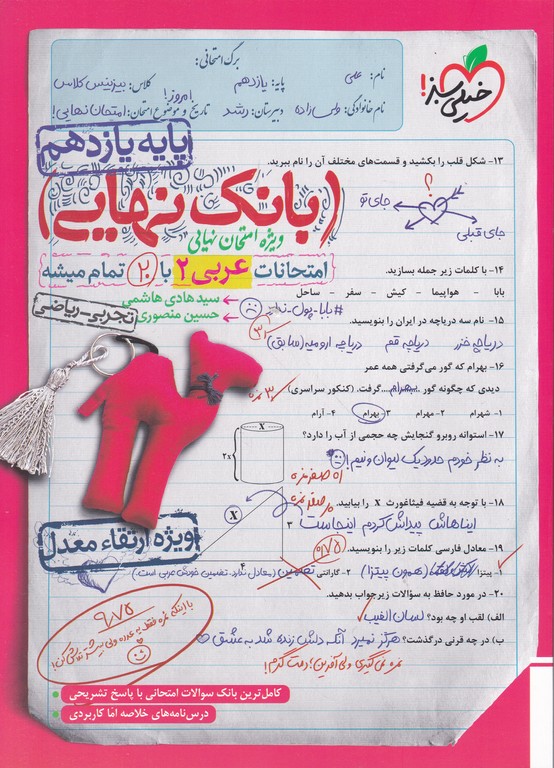 خیلی سبز!
برگ امتحانی:
نام: علی
پایه: یازدهم
کلاس: بیزینس کلاس
نام خانوادگی: ولی زاده
دبیرستان: رشد
تاریخ و موضوع امتحان: امتحان نهایی!
امروز!
پایه یازدهم
۱۳- شکل قلب را بکشید و قسمت‌های مختلف آن را نام ببرید.
؟
جای تو
جای قبلی
(بانک نهایی)
ویژه امتحان نهایی
امتحانات عربی ۲ با ۲۰ تمام میشه
سید هادی هاشمی
حسین منصوری
تجربی-ریاضی
۱۴- با کلمات زیر جمله بسازید.
بابا - هواپیما - کیش - سفر - ساحل
#بابا-پول-نداره
۱۵- نام سه دریاچه در ایران را بنویسید.
دریاچه خزر دریاچه قم دریاچه ارومیه (سابق)
۱۶- بهرام که گور می‌گرفتی همه عمر
دیدی که چگونه گور ...بهرام... گرفت. (کنکور سراسری)
۳ نمره
۱- شهرام ۲- مهرام ۳- بهرام ۴- آرام
۱۷- استوانه روبرو گنجایش چه حجمی از آب را دارد؟
X
2X
به نظر خودم حدود یک لیوان و نیم!
۱۸- با توجه به قضیه فیثاغورث X را بیابید.
ایناهاش پیداش کردم اینجاست
X
۳
۴
۱۹- معادل فارسی کلمات زیر را بنویسید.
۰/۷۵
۱- پیتزا (همون پیتزا) ۲- گارانتی تضمین (معادل ندارد. تضمین خودش عربی است.)
۲۰- در مورد حافظ به سؤالات زیر جواب بدهید.
الف) لقب او چه بود؟ لسان الغیب
ب) در چه قرنی درگذشت؟ هرگز نمیرد آنکه دلش زنده شد به عشق
نمره نمی‌گیری ولی آفرین! دمت گرم!
ویژه ارتقاء معدل
۹/۷۵
با اینکه نمره فقط یه عدده ولی بیشتر تلاش کن!
کامل‌ترین بانک سوالات امتحانی با پاسخ تشریحی
درس‌نامه‌های خلاصه اما کاربردی